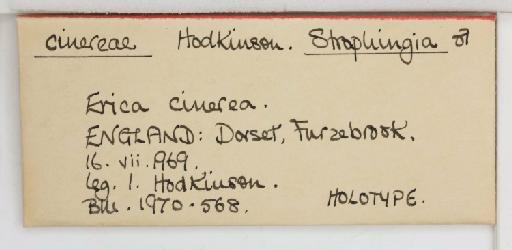 cinereae Hodkinson. Strophingia ♂
Erica cinerea.
ENGLAND: Dorset, Furzebrook.
16. vii. 1969.
leg. I. Hodkinson.
B.M. 1970-568. HOLOTYPE.